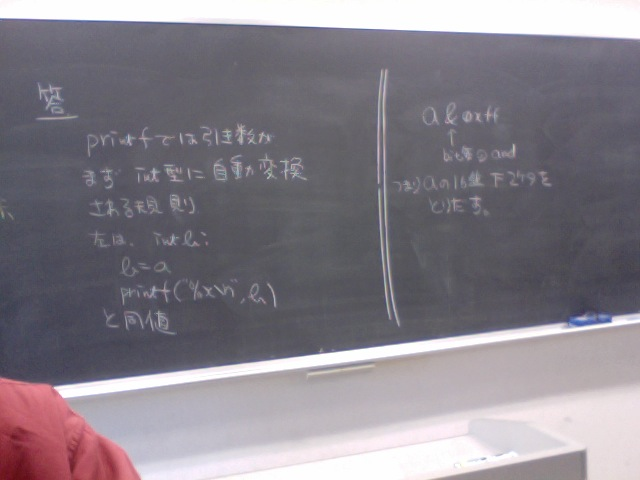 答
printfでは引数が
まず int型に自動変換
される規則
左は、int b;
b=a
printf("%x\n",b)
と同値
a & 0xff
↑
bit毎のand
つまりaの16進下2ケタを
とりだす。